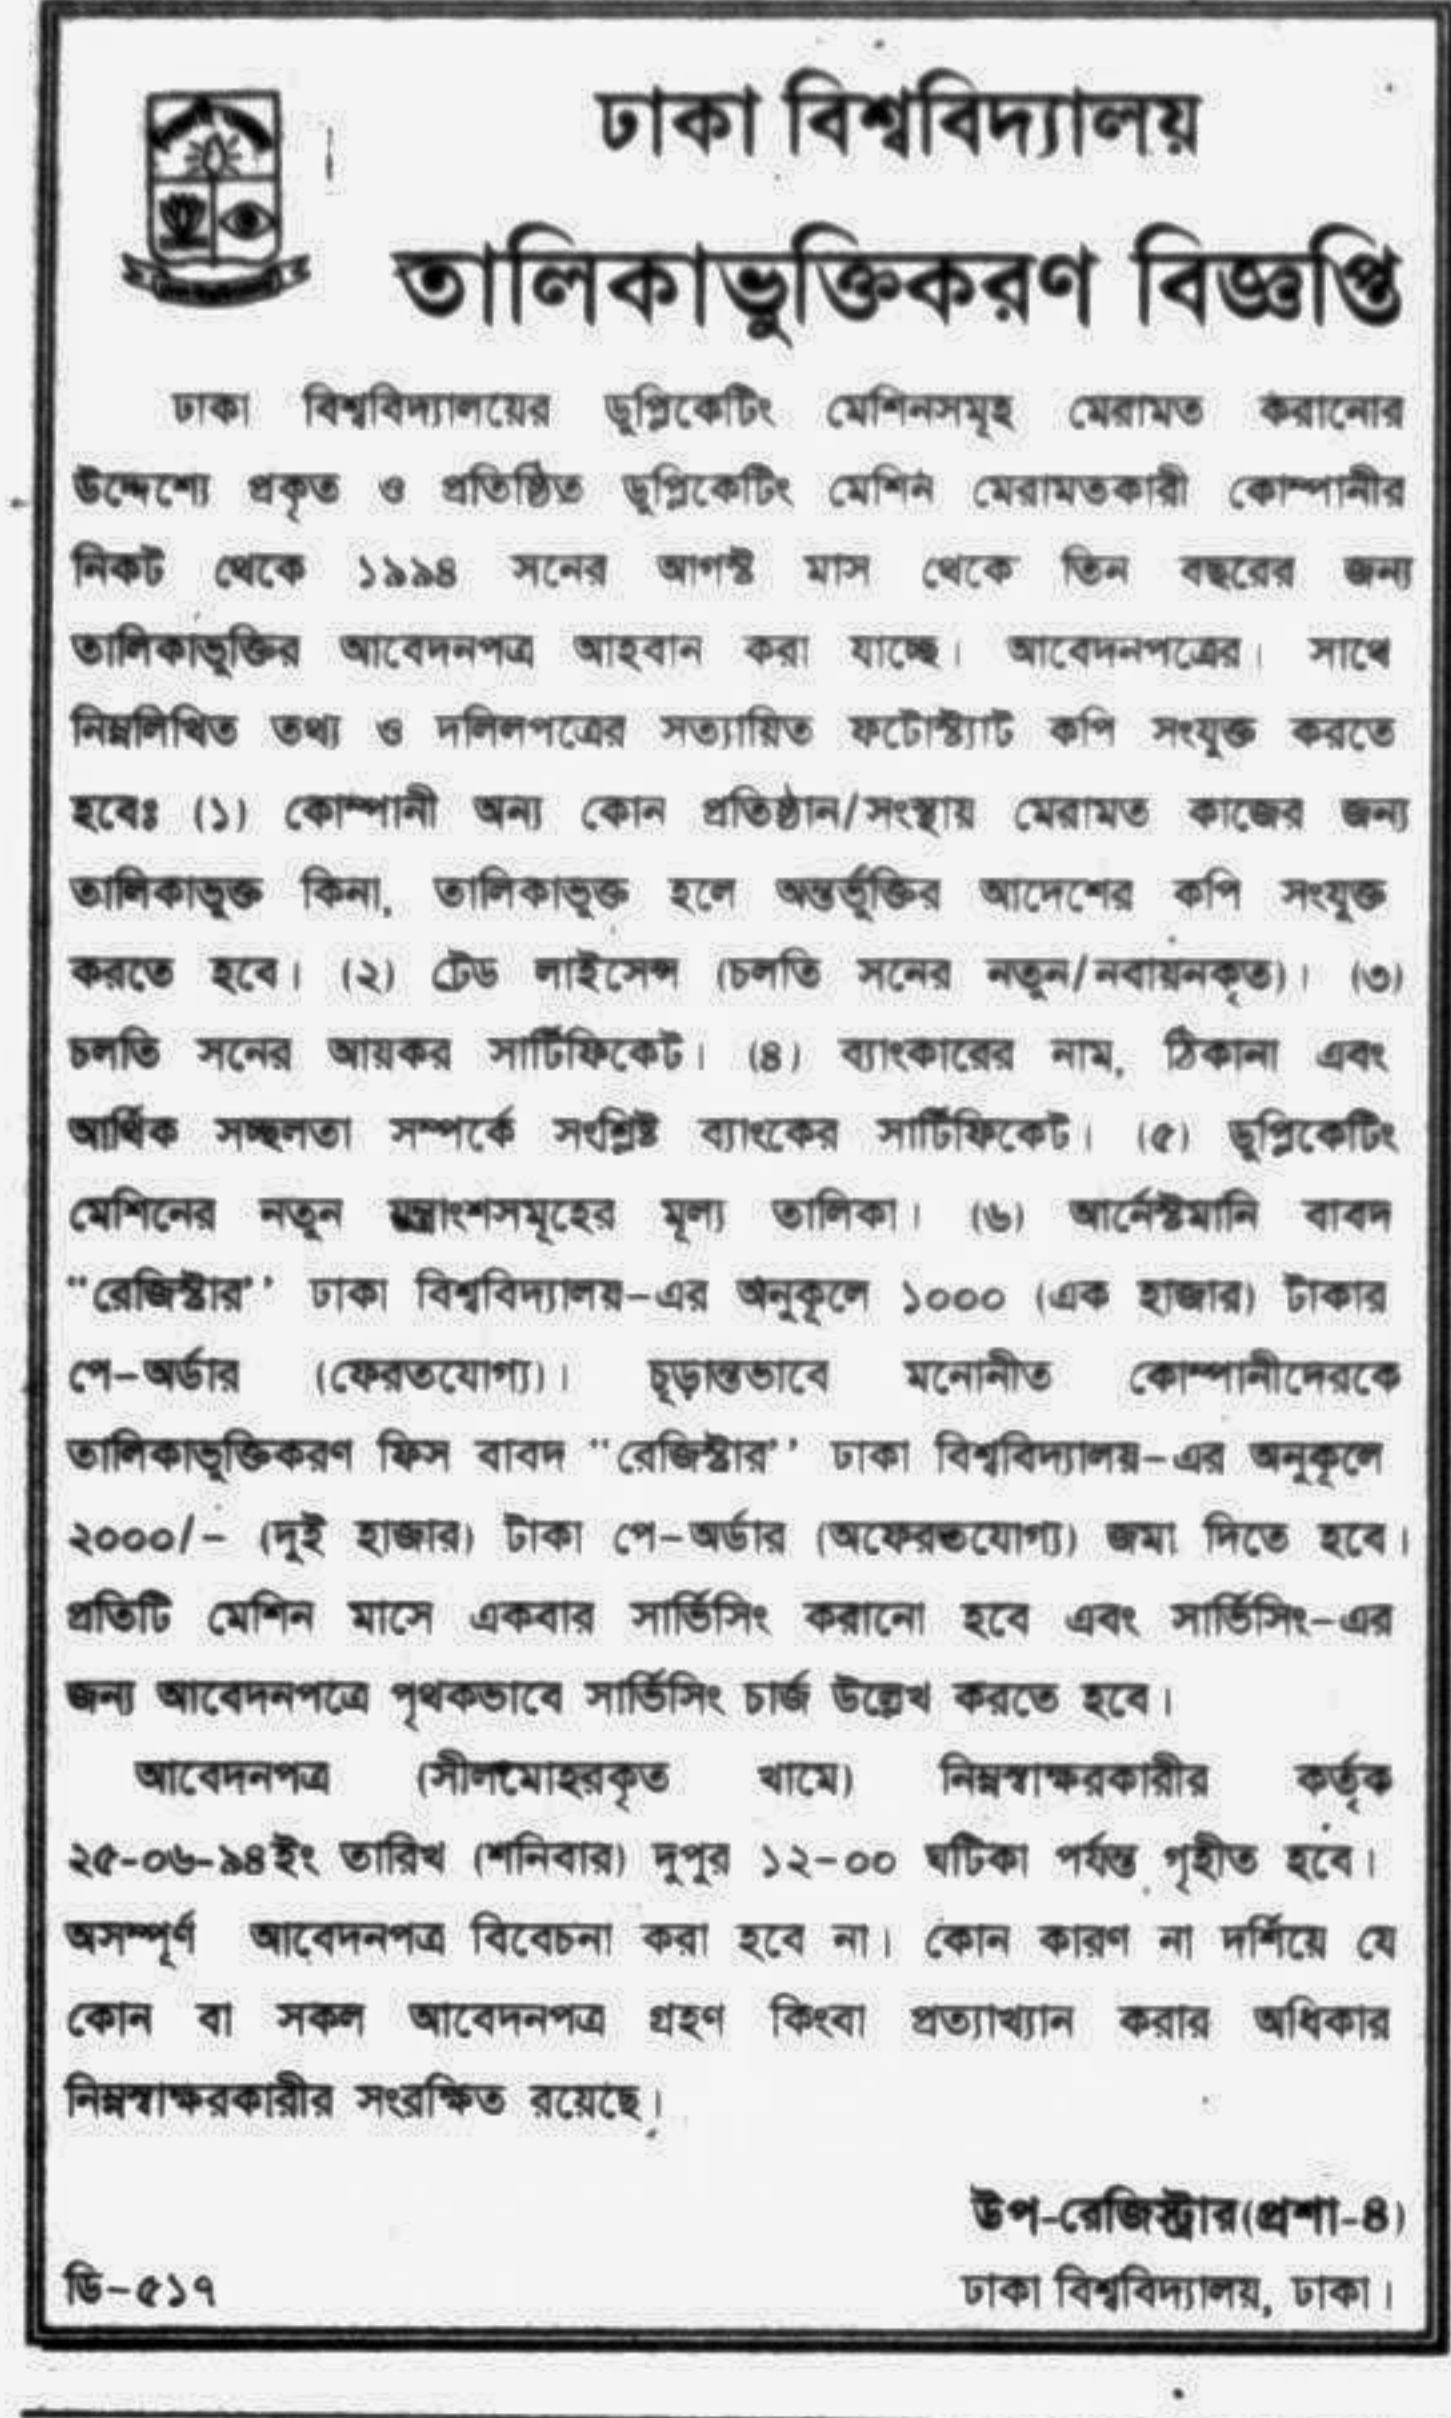 ঢাকা বিশ্ববিদ্যালয়
তালিকাভুক্তিকরণ বিজ্ঞপ্তি
ঢাকা বিশ্ববিদ্যালয়ের ডুপ্লিকেটিং মেশিনসমূহ মেরামত করানোর
উদ্দেশ্যে প্রকৃত ও প্রতিষ্ঠিত ডুপ্লিকেটিং মেশিন মেরামতকারী কোম্পানীর
নিকট থেকে ১৯৯৪ সনের আগস্ট মাস থেকে তিন বছরের জন্য
তালিকাভুক্তির আবেদনপত্র আহবান করা যাচ্ছে। আবেদনপত্রের। সাথে
নিম্নলিখিত তথ্য ও দলিলপত্রের সত্যায়িত ফটোস্ট্যাট কপি সংযুক্ত করতে
হবেঃ (১) কোম্পানী অন্য কোন প্রতিষ্ঠান/সংস্থায় মেরামত কাজের জন্য
তালিকাভুক্ত কিনা, তালিকাভুক্ত হলে অন্তর্ভুক্তির আদেশের কপি সংযুক্ত
করতে হবে। (২) ট্রেড লাইসেন্স (চলতি সনের নতুন/নবায়নকৃত)। (৩)
চলতি সনের আয়কর সার্টিফিকেট। (৪) ব্যাংকারের নাম, ঠিকানা এবং
আর্থিক সচ্ছলতা সম্পর্কে সংশ্লিষ্ট ব্যাংকের সার্টিফিকেট। (৫) ডুপ্লিকেটিং
মেশিনের নতুন যন্ত্রাংশসমূহের মূল্য তালিকা। (৬) আর্নেস্টমানি বাবদ
“রেজিস্টার’’ ঢাকা বিশ্ববিদ্যালয়-এর অনুকূলে ১০০০ (এক হাজার) টাকার
পে-অর্ডার (ফেরতযোগ্য)। চূড়ান্তভাবে মনোনীত কোম্পানীদেরকে
তালিকাভুক্তিকরণ ফিস বাবদ “রেজিস্টার’’ ঢাকা বিশ্ববিদ্যালয়-এর অনুকূলে
২০০০/- (দুই হাজার) টাকা পে-অর্ডার (অফেরতযোগ্য) জমা দিতে হবে।
প্রতিটি মেশিন মাসে একবার সার্ভিসিং করানো হবে এবং সার্ভিসিং-এর
জন্য আবেদনপত্রে পৃথকভাবে সার্ভিসিং চার্জ উল্লেখ করতে হবে।
আবেদনপত্র (সীলমোহরকৃত খামে) নিম্নস্বাক্ষরকারীর কর্তৃক
২৫-০৬-৯৪ইং তারিখ (শনিবার) দুপুর ১২-০০ ঘটিকা পর্যন্ত গৃহীত হবে।
অসম্পূর্ণ আবেদনপত্র বিবেচনা করা হবে না। কোন কারণ না দর্শিয়ে যে
কোন বা সকল আবেদনপত্র গ্রহণ কিংবা প্রত্যাখ্যান করার অধিকার
নিম্নস্বাক্ষরকারীর সংরক্ষিত রয়েছে।
উপ-রেজিস্ট্রার(প্রশা-৪)
ডি-৫১৭ ঢাকা বিশ্ববিদ্যালয়, ঢাকা।